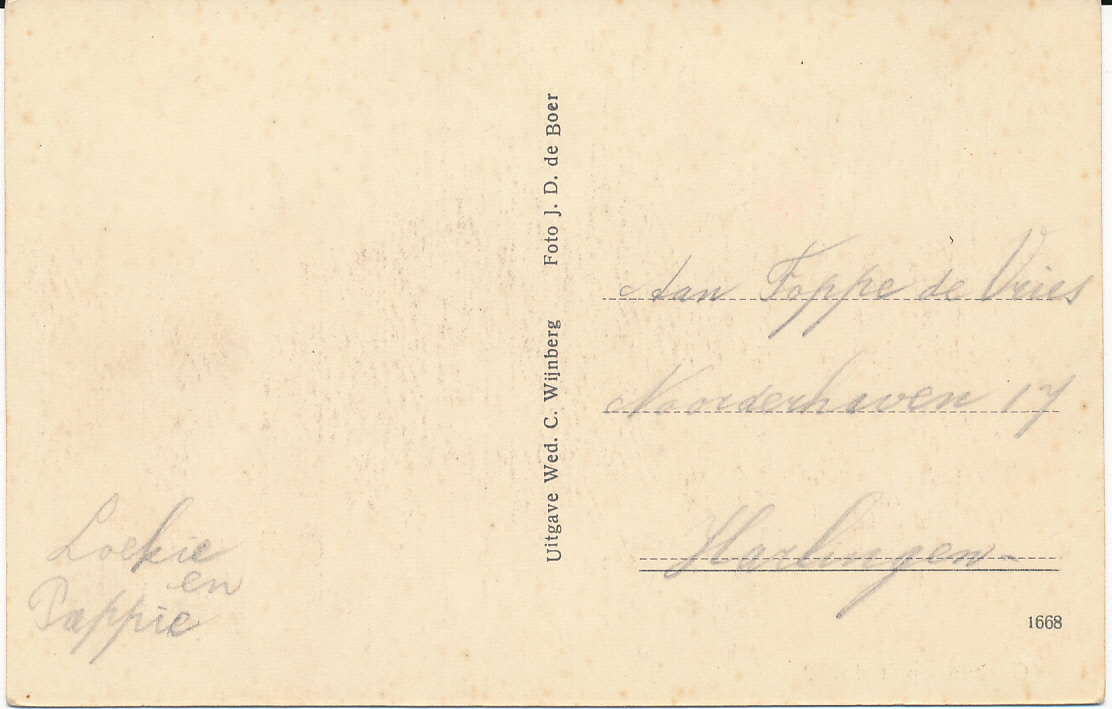 Loekie
en
Pappie
Uitgave Wed. C. Wijnberg Foto J. D. de Boer
Aan Foppe de Vries
Noorderhaven 17
Harlingen
1668